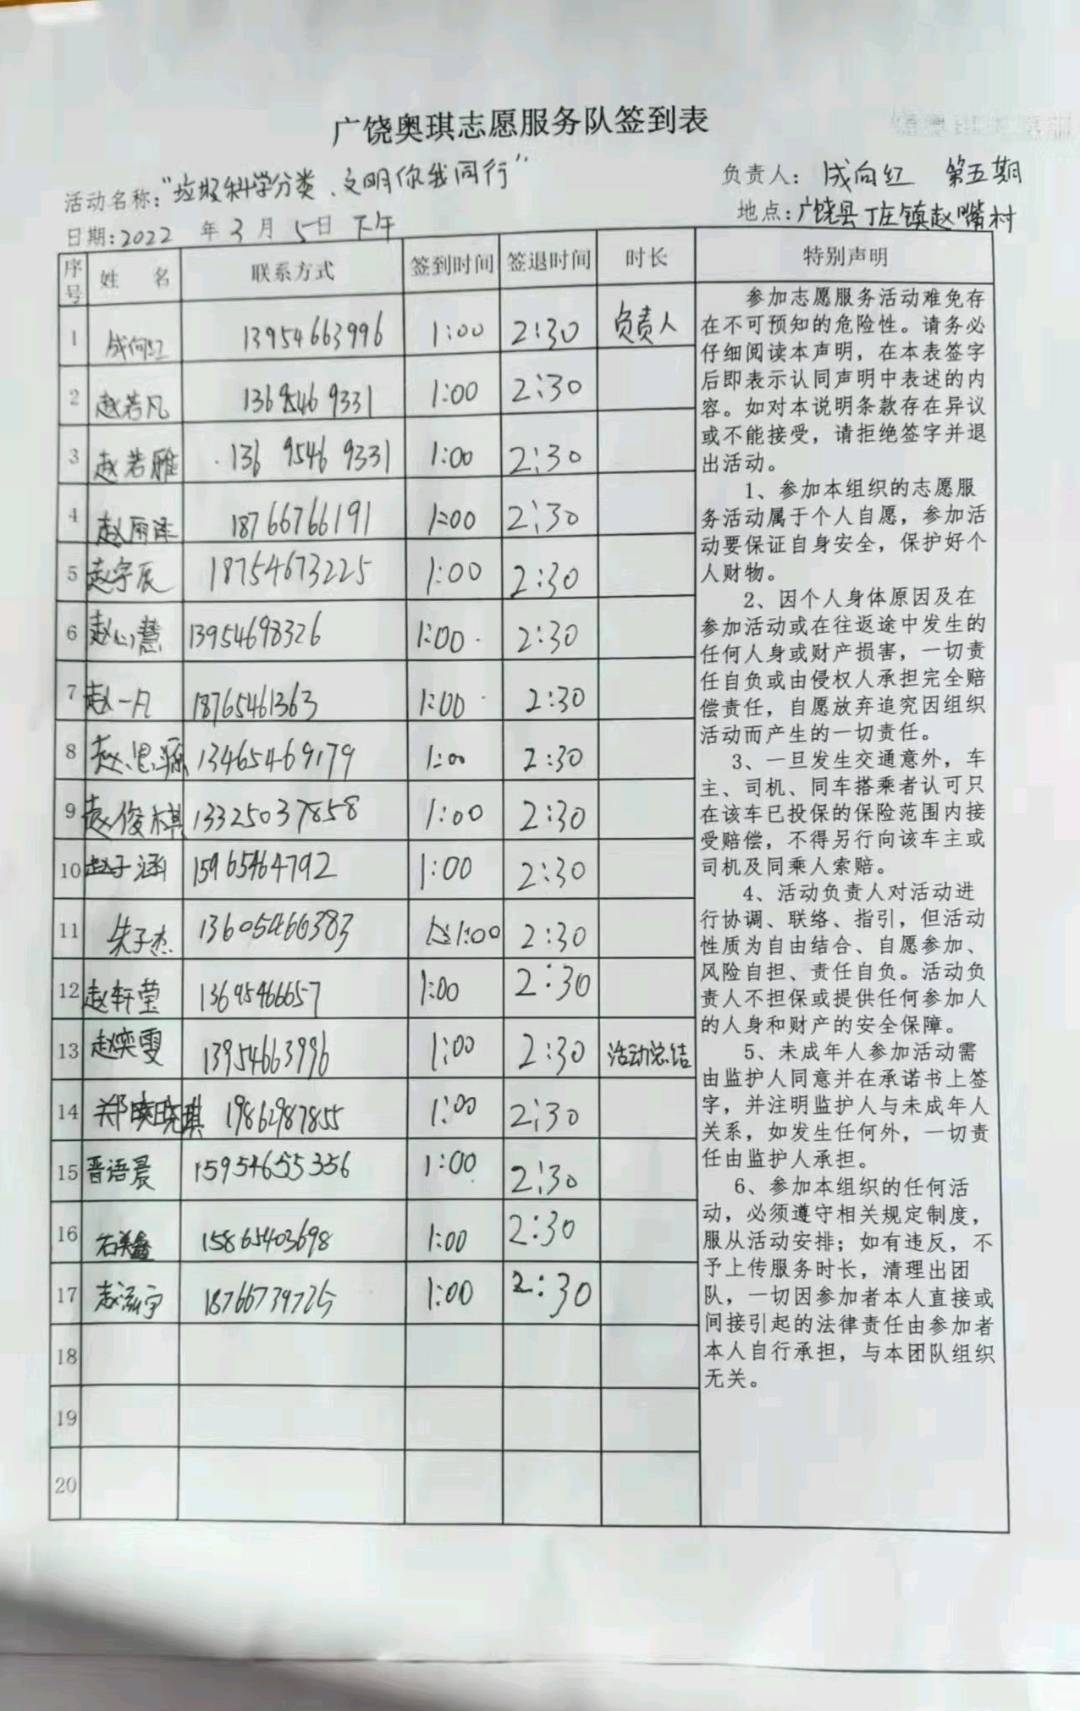 广饶奥琪志愿服务队签到表
活动名称:"垃圾科学分类、文明你我同行"
负责人: 成向红 第五期
日期:2022 年 3 月 5 日 下午
地点:广饶县丁庄镇赵嘴村
序号 姓 名 联系方式 签到时间 签退时间 时长 特别声明
1 成向红 13954663996 1:00 2:30 负责人
2 赵若凡 13695469331 1:00 2:30
3 赵若雁 136 9546 9331 1:00 2:30
4 赵雨泽 18766766191 1:00 2:30
5 赵宇辰 18754673225 1:00 2:30
6 赵心慧 13954698326 1:00 2:30
7 赵一凡 18765461363 1:00 2:30
8 赵思源 13465469179 1:00 2:30
9 赵俊棋 13325037858 1:00 2:30
10 赵子涵 15965464792 1:00 2:30
11 朱子杰 13605466383 1:00 2:30
12 赵轩莹 13695466657 1:00 2:30
13 赵奕雯 13954663996 1:00 2:30 活动总结
14 郑晓琪 19862987855 1:00 2:30
15 晋语晨 15954655356 1:00 2:30
16 石美鑫 15865403698 1:00 2:30
17 赵泓宇 18766739725 1:00 2:30
18
19
20
参加志愿服务活动难免存
在不可预知的危险性。请务必
仔细阅读本声明，在本表签字
后即表示认同声明中表述的内
容。如对本说明条款存在异议
或不能接受，请拒绝签字并退
出活动。
1、参加本组织的志愿服
务活动属于个人自愿，参加活
动要保证自身安全，保护好个
人财物。
2、因个人身体原因及在
参加活动或在往返途中发生的
任何人身或财产损害，一切责
任自负或由侵权人承担完全赔
偿责任，自愿放弃追究因组织
活动而产生的一切责任。
3、一旦发生交通意外，车
主、司机、同车搭乘者认可只
在该车已投保的保险范围内接
受赔偿，不得另行向该车主或
司机及同乘人索赔。
4、活动负责人对活动进
行协调、联络、指引，但活动
性质为自由结合、自愿参加、
风险自担、责任自负。活动负
责人不担保或提供任何参加人
的人身和财产的安全保障。
5、未成年人参加活动需
由监护人同意并在承诺书上签
字，并注明监护人与未成年人
关系，如发生任何外，一切责
任由监护人承担。
6、参加本组织的任何活
动，必须遵守相关规定制度，
服从活动安排；如有违反，不
予上传服务时长，清理出团
队，一切因参加者本人直接或
间接引起的法律责任由参加者
本人自行承担，与本团队组织
无关。